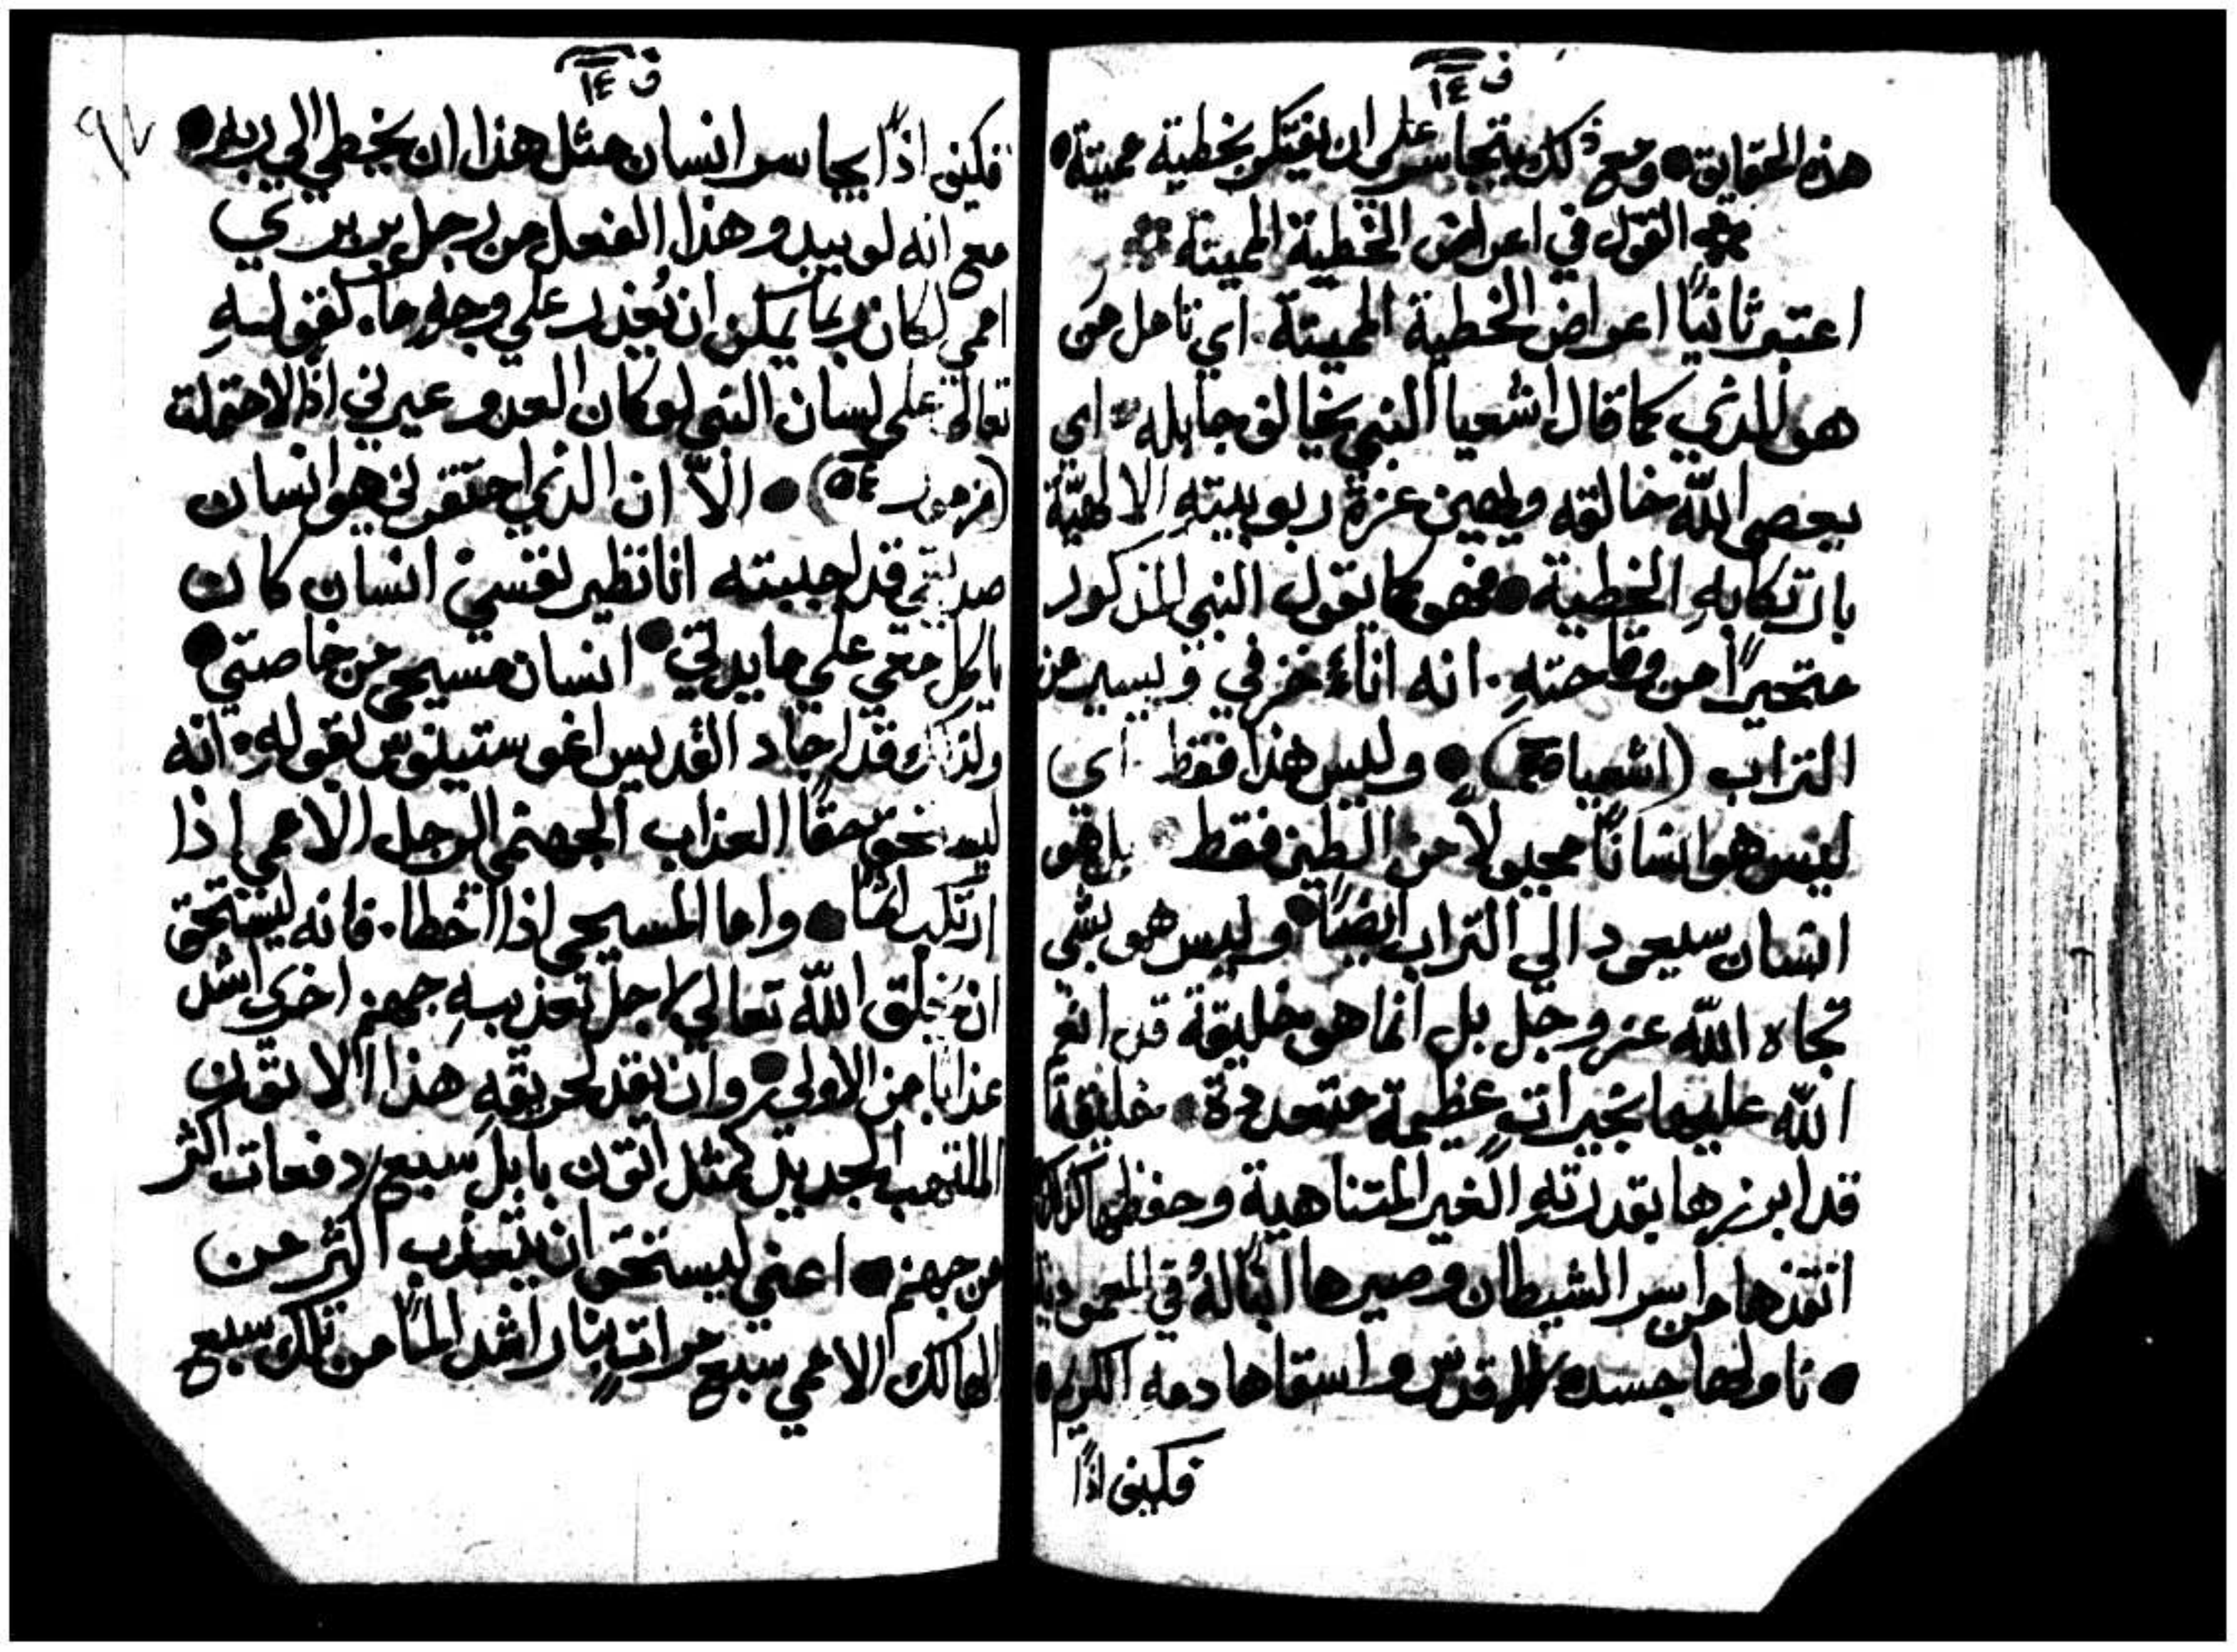 ف ١٤
هذه الحقايق • ومع ذلك يتجاسر على ان يفتكر بخطية مميتة •
القول في اعراض الخطية المميتة
اعتبر ثانياً اعراض الخطية المميتة . اي تامل من
هو الذي كما قال اشعيا النبي يخالق جابله . اي
يعصي اللّه خالقه ويهين عزة ربوبيتهِ الالهيّة
بارتكابهِ الخطية • فهو كما يقول النبي المذكور
متحيراً من وقاحتهِ . انه اناءٌ خزفي ويسير من
التراب (اشعيا) • وليس هذا فقط . اي
ليس هو انساناً مجبولاً من الطين فقط . بل هو
انسان سيعود الي التراب ايضاً • وليس هو بشي
تجاه اللّه عز وجل بل انما هو خليقة قد انعم
اللّه عليها بخيراتٍ عظيمة متعددة . خليقةً
قد ابرزها بقدرتهِ الغير المتناهية وحفظها كذلك
انقذها من اسر الشيطان وصيرها ابنةً لهُ في المعمودية
• ناولها جسده المقدس واسقاها دمه الكريم •
فكيف اذاً
ف ١٤
٩٧
فكيف اذاً يجاسر انسان مثل هذا ان يخطي الي ربه •
مع انه لو يبدو هذا الفعل من رجل بربري
اممي لكان ربما يمكن ان يُعذر على وجهٍ ما . كقولهِ
تعالى على لسان النبي لو كان العدو عيرني اذاً لاحتملت
(مزمور ٥٤) • الّا ان الذي احتقرني هو انسان
صديقي قد احببته انا نظير نفسي انسان كان
ياكل معي علي مايدتي • انسان مسيحي من خاصتي •
ولذلك قد اجاد القديس اغوستينوس بقولهِ . انه
ليستحق حقاً العذاب الجهنمي الرجل الاممي اذا
ارتكب اثماً • واما المسيحي اذا اخطا . فانه ليستحق
ان يخلق اللّه تعالي لاجل تعذيبهِ جهنم اخري اشد
عذاباً من الاولى • وان يقد لحريقهِ هذا الاتون
الملتهب الجديد كمثل اتون بابل سبع دفعات اكثر
من جهنم • اعني ليستحق ان يتعذب اكثر من
الهالك الاممي سبع مراتٍ بنار اشد الماً من تلك سبع